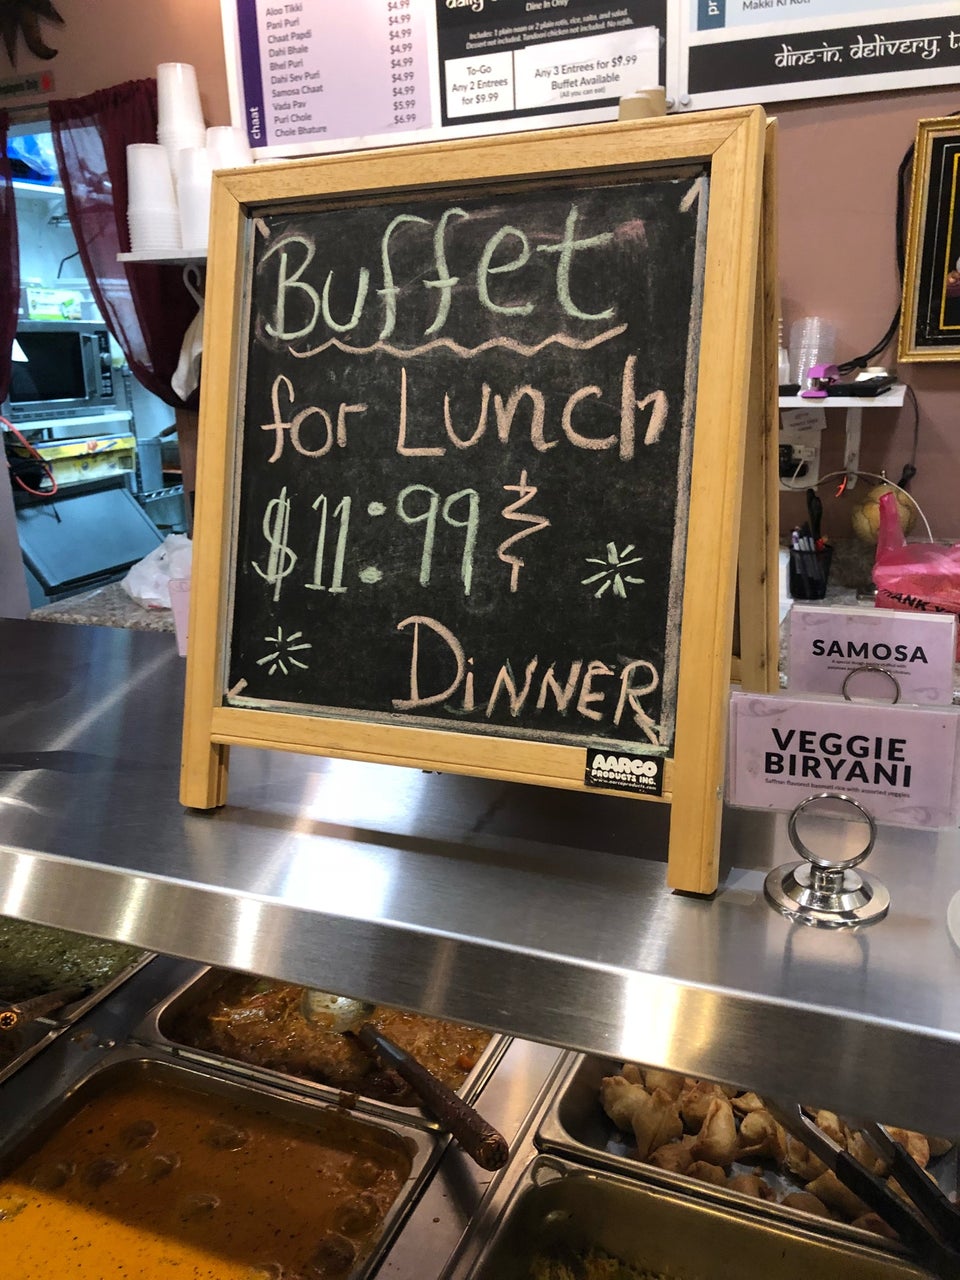 Aloo Tikki $4.99
Pani Puri $4.99
Chaat Papdi $4.99
Dahi Bhale $4.99
Bhel Puri $4.99
Dahi Sev Puri $4.99
Samosa Chaat $4.99
Vada Pav $5.99
Puri Chole $6.99
Chole Bhature
chaat
Dine In Only
Includes: 1 plain naan or 2 plain rotis, rice, raita, and salad.
Dessert not included. Tandoori chicken not included. No refills.
To-Go
Any 2 Entrees
for $9.99
Any 3 Entrees for $9.99
Buffet Available
(All you can eat)
Makki Ki Roti
dine-in, delivery,
Buffet
for Lunch
$11.99 &
DiNNER
AARCO
PRODUCTS INC.
www.aarcoproducts.com
SAMOSA
VEGGIE
BIRYANI
Saffron flavored basmati rice with assorted veggies